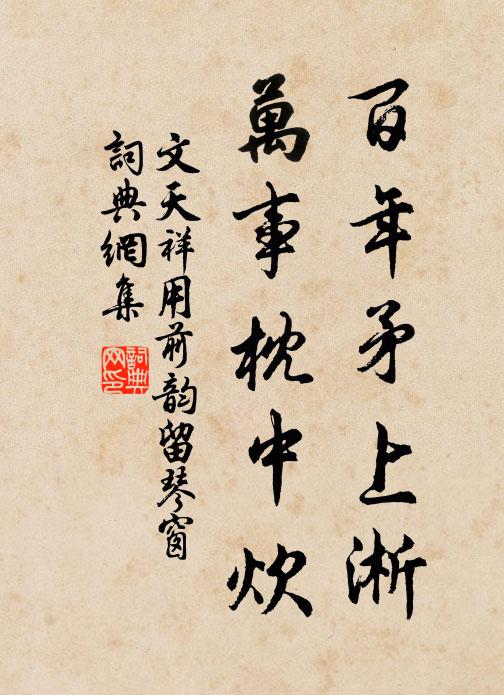 百年矛上淅
萬事枕中炊
文天祥用前韵留琴窗
詞典網集
詞典網印